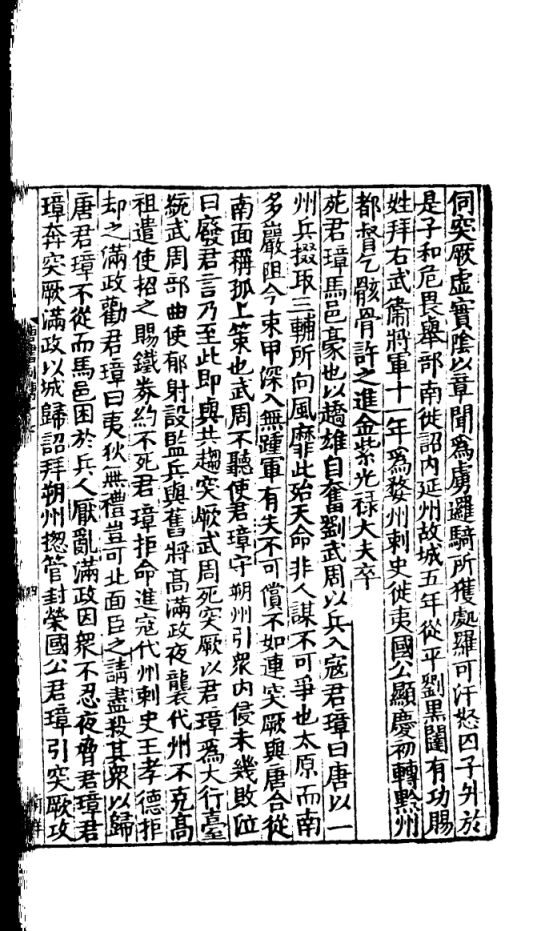 伺突厥虛實陰以章聞爲虜邏騎所獲處羅可汗怒囚子升於
是子和危畏舉部南徙詔内延州故城五年從平劉黑闥有功賜
姓拜右武衞將軍十一年爲婺州刺史徙夷國公顯慶初轉黔州
都督乞骸骨許之進金紫光祿大夫卒
苑君璋馬邑豪也以趫雄自奮劉武周以兵入寇君璋曰唐以一
州兵掇取三輔所向風靡此殆天命非人謀不可爭也太原而南
多巖阻今束甲深入無踵軍有失不可償不如連突厥與唐合從
南面稱孤上策也武周不聽使君璋守朔州引衆内侵未幾敗泣
曰廢君言乃至此即與共趨突厥武周死突厥以君璋爲大行臺
統武周部曲使郁射設監兵與舊將高滿政夜襲代州不克高
祖遣使招之賜鐵券約不死君璋拒命進寇代州刺史王孝德拒
却之滿政勸君璋曰夷狄無禮豈可北面臣之請盡殺其衆以歸
唐君璋不從而馬邑困於兵人厭亂滿政因衆不忍夜脅君璋君
璋奔突厥滿政以城歸詔拜朔州揔管封榮國公君璋引突厥攻